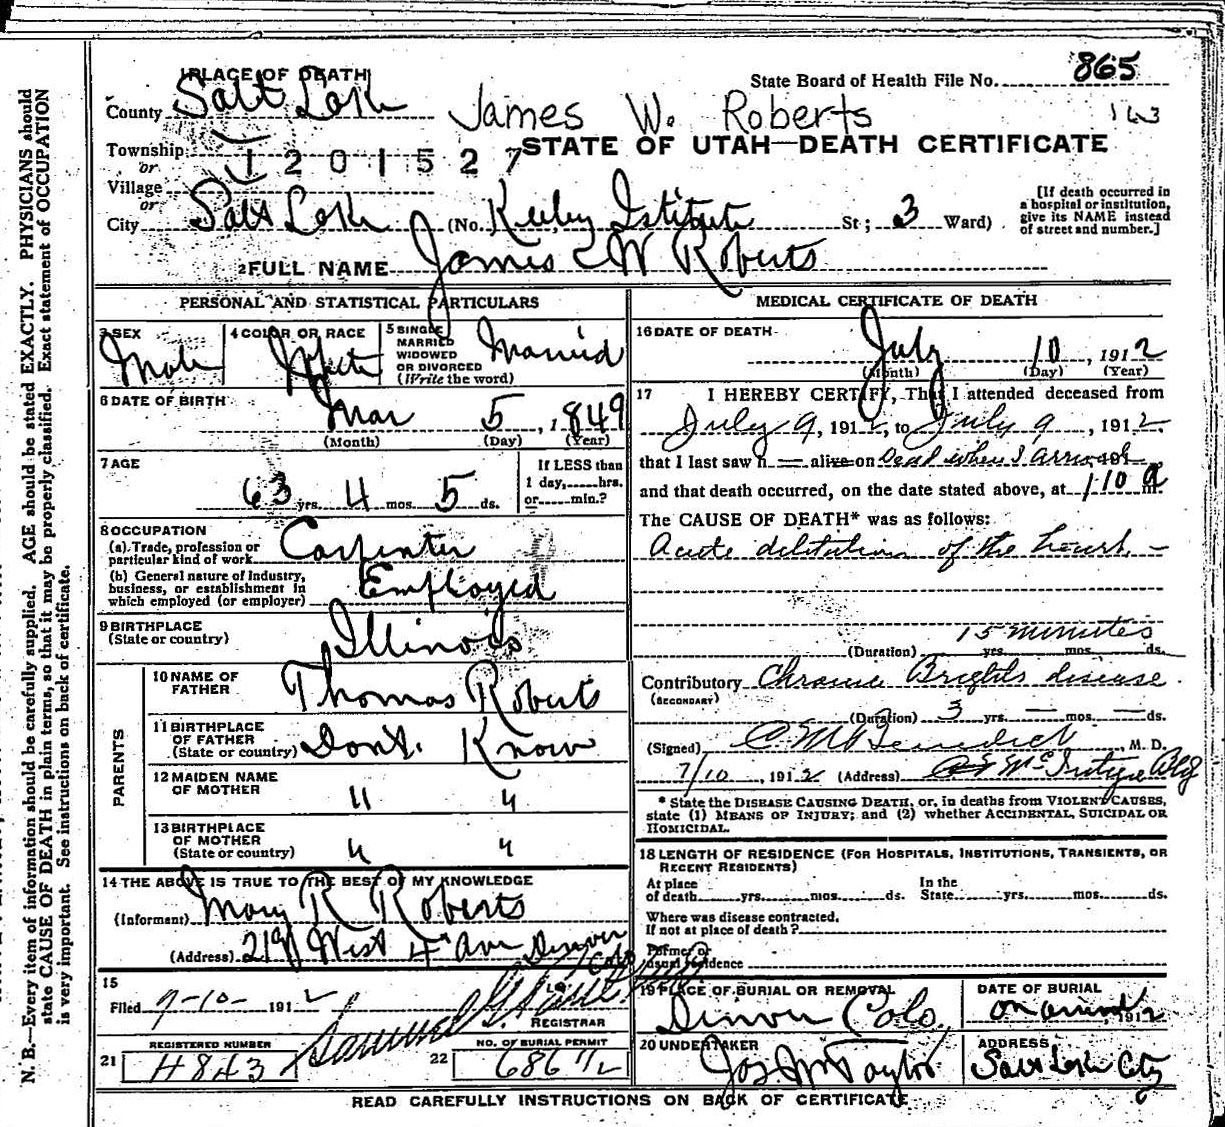 865
State Board of Health File No.
163
1 PLACE OF DEATH
County Salt Lake
James W. Roberts
Township
or
1201527
STATE OF UTAH—DEATH CERTIFICATE
Village
or
City Salt Lake (No. Keeley Institute St; 3 Ward)
[If death occurred in a hospital or institution, give its NAME instead of street and number.]
2 FULL NAME James W Roberts
PERSONAL AND STATISTICAL PARTICULARS
3 SEX Male
4 COLOR OR RACE White
5 SINGLE MARRIED WIDOWED OR DIVORCED (Write the word) Married
6 DATE OF BIRTH
Mar 5, 1849
(Month) (Day) (Year)
7 AGE
63 yrs. 4 mos. 5 ds.
If LESS than 1 day,......hrs. or......min.?
8 OCCUPATION
(a) Trade, profession or particular kind of work Carpenter
(b) General nature of Industry, business, or establishment in which employed (or employer) Employed
9 BIRTHPLACE
(State or country) Illinois
PARENTS
10 NAME OF FATHER Thomas Roberts
11 BIRTHPLACE OF FATHER (State or country) Dont Know
12 MAIDEN NAME OF MOTHER " "
13 BIRTHPLACE OF MOTHER (State or country) " "
14 THE ABOVE IS TRUE TO THE BEST OF MY KNOWLEDGE
(Informant) Mary R Roberts
(Address) West 4" Ave Denver Colo
15
Filed 7-10- 1912
REGISTRAR
REGISTERED NUMBER
21 H843
NO. OF BURIAL PERMIT
22
MEDICAL CERTIFICATE OF DEATH
16 DATE OF DEATH
July 10, 1912
(Month) (Day) (Year)
17 I HEREBY CERTIFY, That I attended deceased from
July 9, 1912, to July 9, 1912,
that I last saw h — alive on Dead when I arrived 191
and that death occurred, on the date stated above, at 1-10 a m.
The CAUSE OF DEATH* was as follows:
Acute dilitation of the heart —
15 minutes
(Duration) yrs. mos. ds.
Contributory Chronic Brights disease
(SECONDARY)
(Duration) 3 yrs. — mos. — ds.
(Signed) C. M. Benedict, M. D.
7/10, 1912 (Address) McIntyre Bldg
* State the DISEASE CAUSING DEATH, or, in deaths from VIOLENT CAUSES, state (1) MEANS OF INJURY; and (2) whether ACCIDENTAL, SUICIDAL OR HOMICIDAL.
18 LENGTH OF RESIDENCE (FOR HOSPITALS, INSTITUTIONS, TRANSIENTS, OR RECENT RESIDENTS)
At place of death yrs. mos. ds. In the State yrs. mos. ds.
Where was disease contracted, If not at place of death?
Former or usual residence
19 PLACE OF BURIAL OR REMOVAL
Denver Colo.
DATE OF BURIAL
on arrival, 1912
20 UNDERTAKER
Jos Wm Taylor
ADDRESS
Salt Lake City
READ CAREFULLY INSTRUCTIONS ON BACK OF CERTIFICATE
N. B.—Every item of information should be carefully supplied. AGE should be stated EXACTLY. PHYSICIANS should
state CAUSE OF DEATH in plain terms, so that it may be properly classified. Exact statement of OCCUPATION
is very important. See instructions on back of certificate.